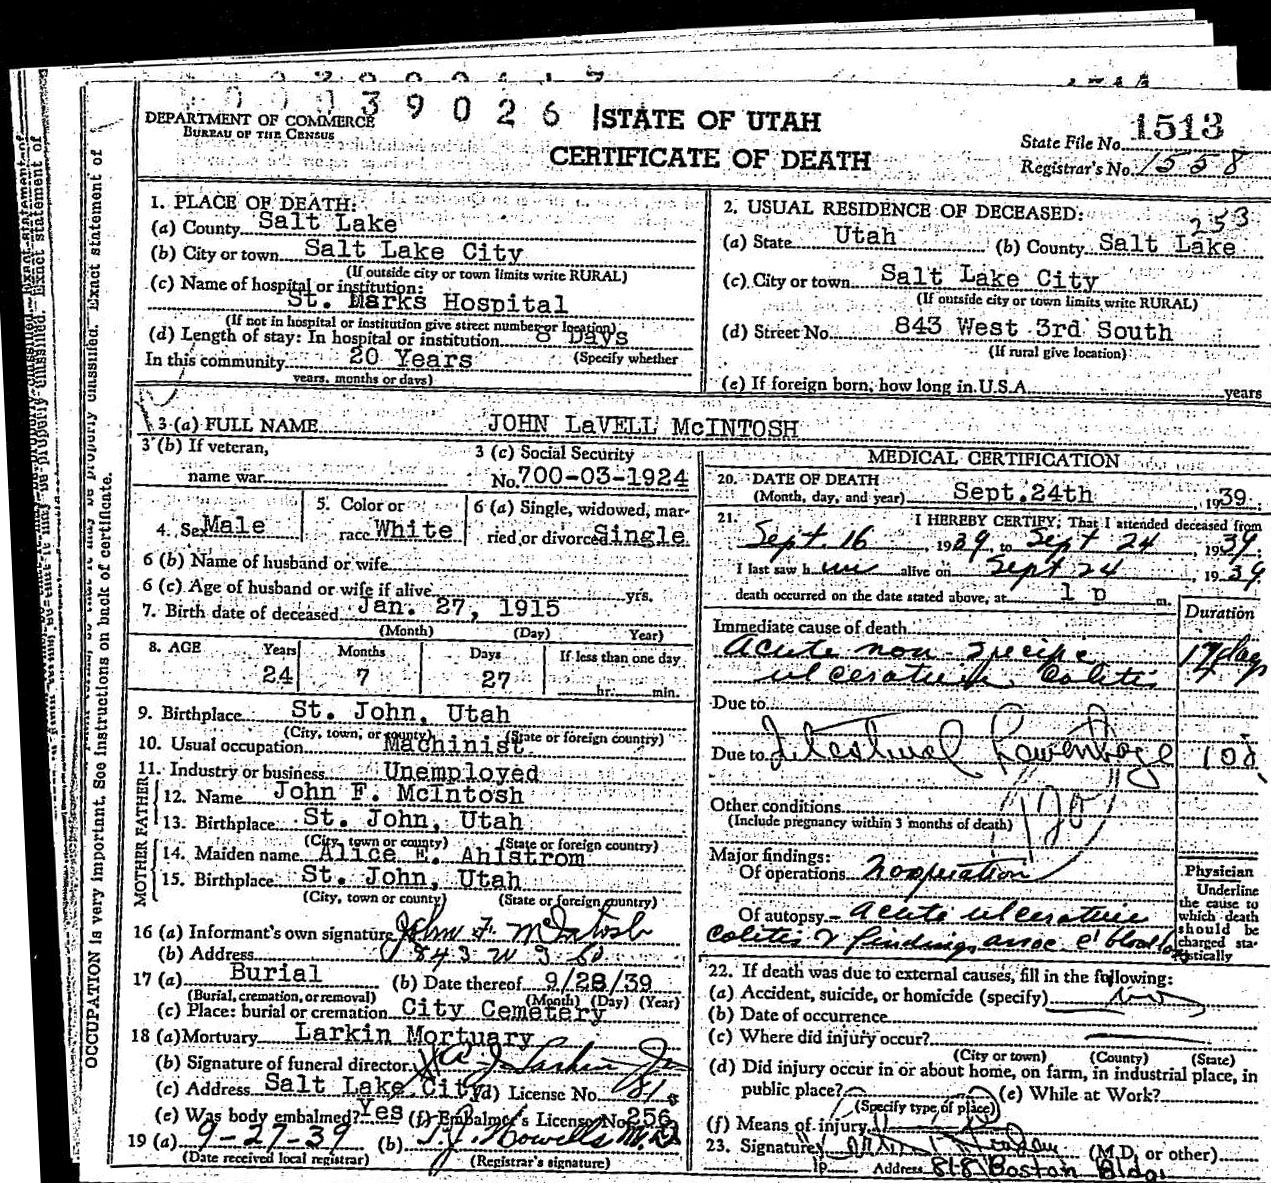 0 0 0 39026
DEPARTMENT OF COMMERCE
BUREAU OF THE CENSUS
STATE OF UTAH
CERTIFICATE OF DEATH
State File No. 1513
Registrar's No. 1558
1. PLACE OF DEATH:
(a) County Salt Lake
(b) City or town Salt Lake City
(If outside city or town limits write RURAL)
(c) Name of hospital or institution:
St. Marks Hospital
(If not in hospital or institution give street number or location)
(d) Length of stay: In hospital or institution 8 Days
In this community 20 Years (Specify whether
years, months or days)
2. USUAL RESIDENCE OF DECEASED:
253
(a) State Utah (b) County Salt Lake
(c) City or town Salt Lake City
(If outside city or town limits write RURAL)
(d) Street No. 843 West 3rd South
(If rural give location)
(e) If foreign born, how long in U.S.A. years
3 (a) FULL NAME JOHN LaVELL McINTOSH
3 (b) If veteran,
name war
3 (c) Social Security
No. 700-03-1924
4. Sex Male
5. Color or
race White
6 (a) Single, widowed, mar-
ried or divorced Single
6 (b) Name of husband or wife
6 (c) Age of husband or wife if alive yrs.
7. Birth date of deceased Jan. 27, 1915
(Month) (Day) Year)
8. AGE Years Months Days If less than one day
24 7 27 hr. min.
9. Birthplace St. John, Utah
(City, town, or county) (State or foreign country)
10. Usual occupation Machinist
11. Industry or business Unemployed
FATHER
12. Name John F. McIntosh
13. Birthplace St. John, Utah
(City, town or county) (State or foreign country)
MOTHER
14. Maiden name Alice E. Ahlstrom
15. Birthplace St. John, Utah
(City, town or county) (State or foreign country)
16 (a) Informant's own signature John F. McIntosh
(b) Address 843 W 3 So
17 (a) Burial (b) Date thereof 9/28/39
(Burial, cremation, or removal) (Month) (Day) (Year)
(c) Place: burial or cremation City Cemetery
18 (a) Mortuary Larkin Mortuary
(b) Signature of funeral director A J Larkin Jr
(c) Address Salt Lake City (d) License No. 81
(e) Was body embalmed? Yes (f) Embalmer's License No. 256
19 (a) 9-27-39 (b) T. J. Howells M.D.
(Date received local registrar) (Registrar's signature)
MEDICAL CERTIFICATION
20. DATE OF DEATH
(Month, day, and year) Sept. 24th, 1939.
21. I HEREBY CERTIFY, That I attended deceased from
Sept. 16, 1939, to Sept 24, 1939.
I last saw h im alive on Sept 24, 1939
death occurred on the date stated above, at 1 p m.
Duration
Immediate cause of death
Acute non-specific
ulcerative Colitis 17 days
Due to
Due to Intestinal 10 d,
120
Other conditions
(Include pregnancy within 3 months of death)
Major findings:
Of operations No operation
Of autopsy - Acute ulcerative
colitis & findings assoc c̄ blood
Physician
Underline
the cause to
which death
should be
charged sta-
tistically
22. If death was due to external causes, fill in the following:
(a) Accident, suicide, or homicide (specify)
(b) Date of occurrence
(c) Where did injury occur?
(City or town) (County) (State)
(d) Did injury occur in or about home, on farm, in industrial place, in
public place? (e) While at Work?
(Specify type of place)
(f) Means of injury
23. Signature (M.D. or other)
1p Address 818 Boston Bldg.
OCCUPATION is very important. See instructions on back of certificate.
be properly omissified. Exact statement of